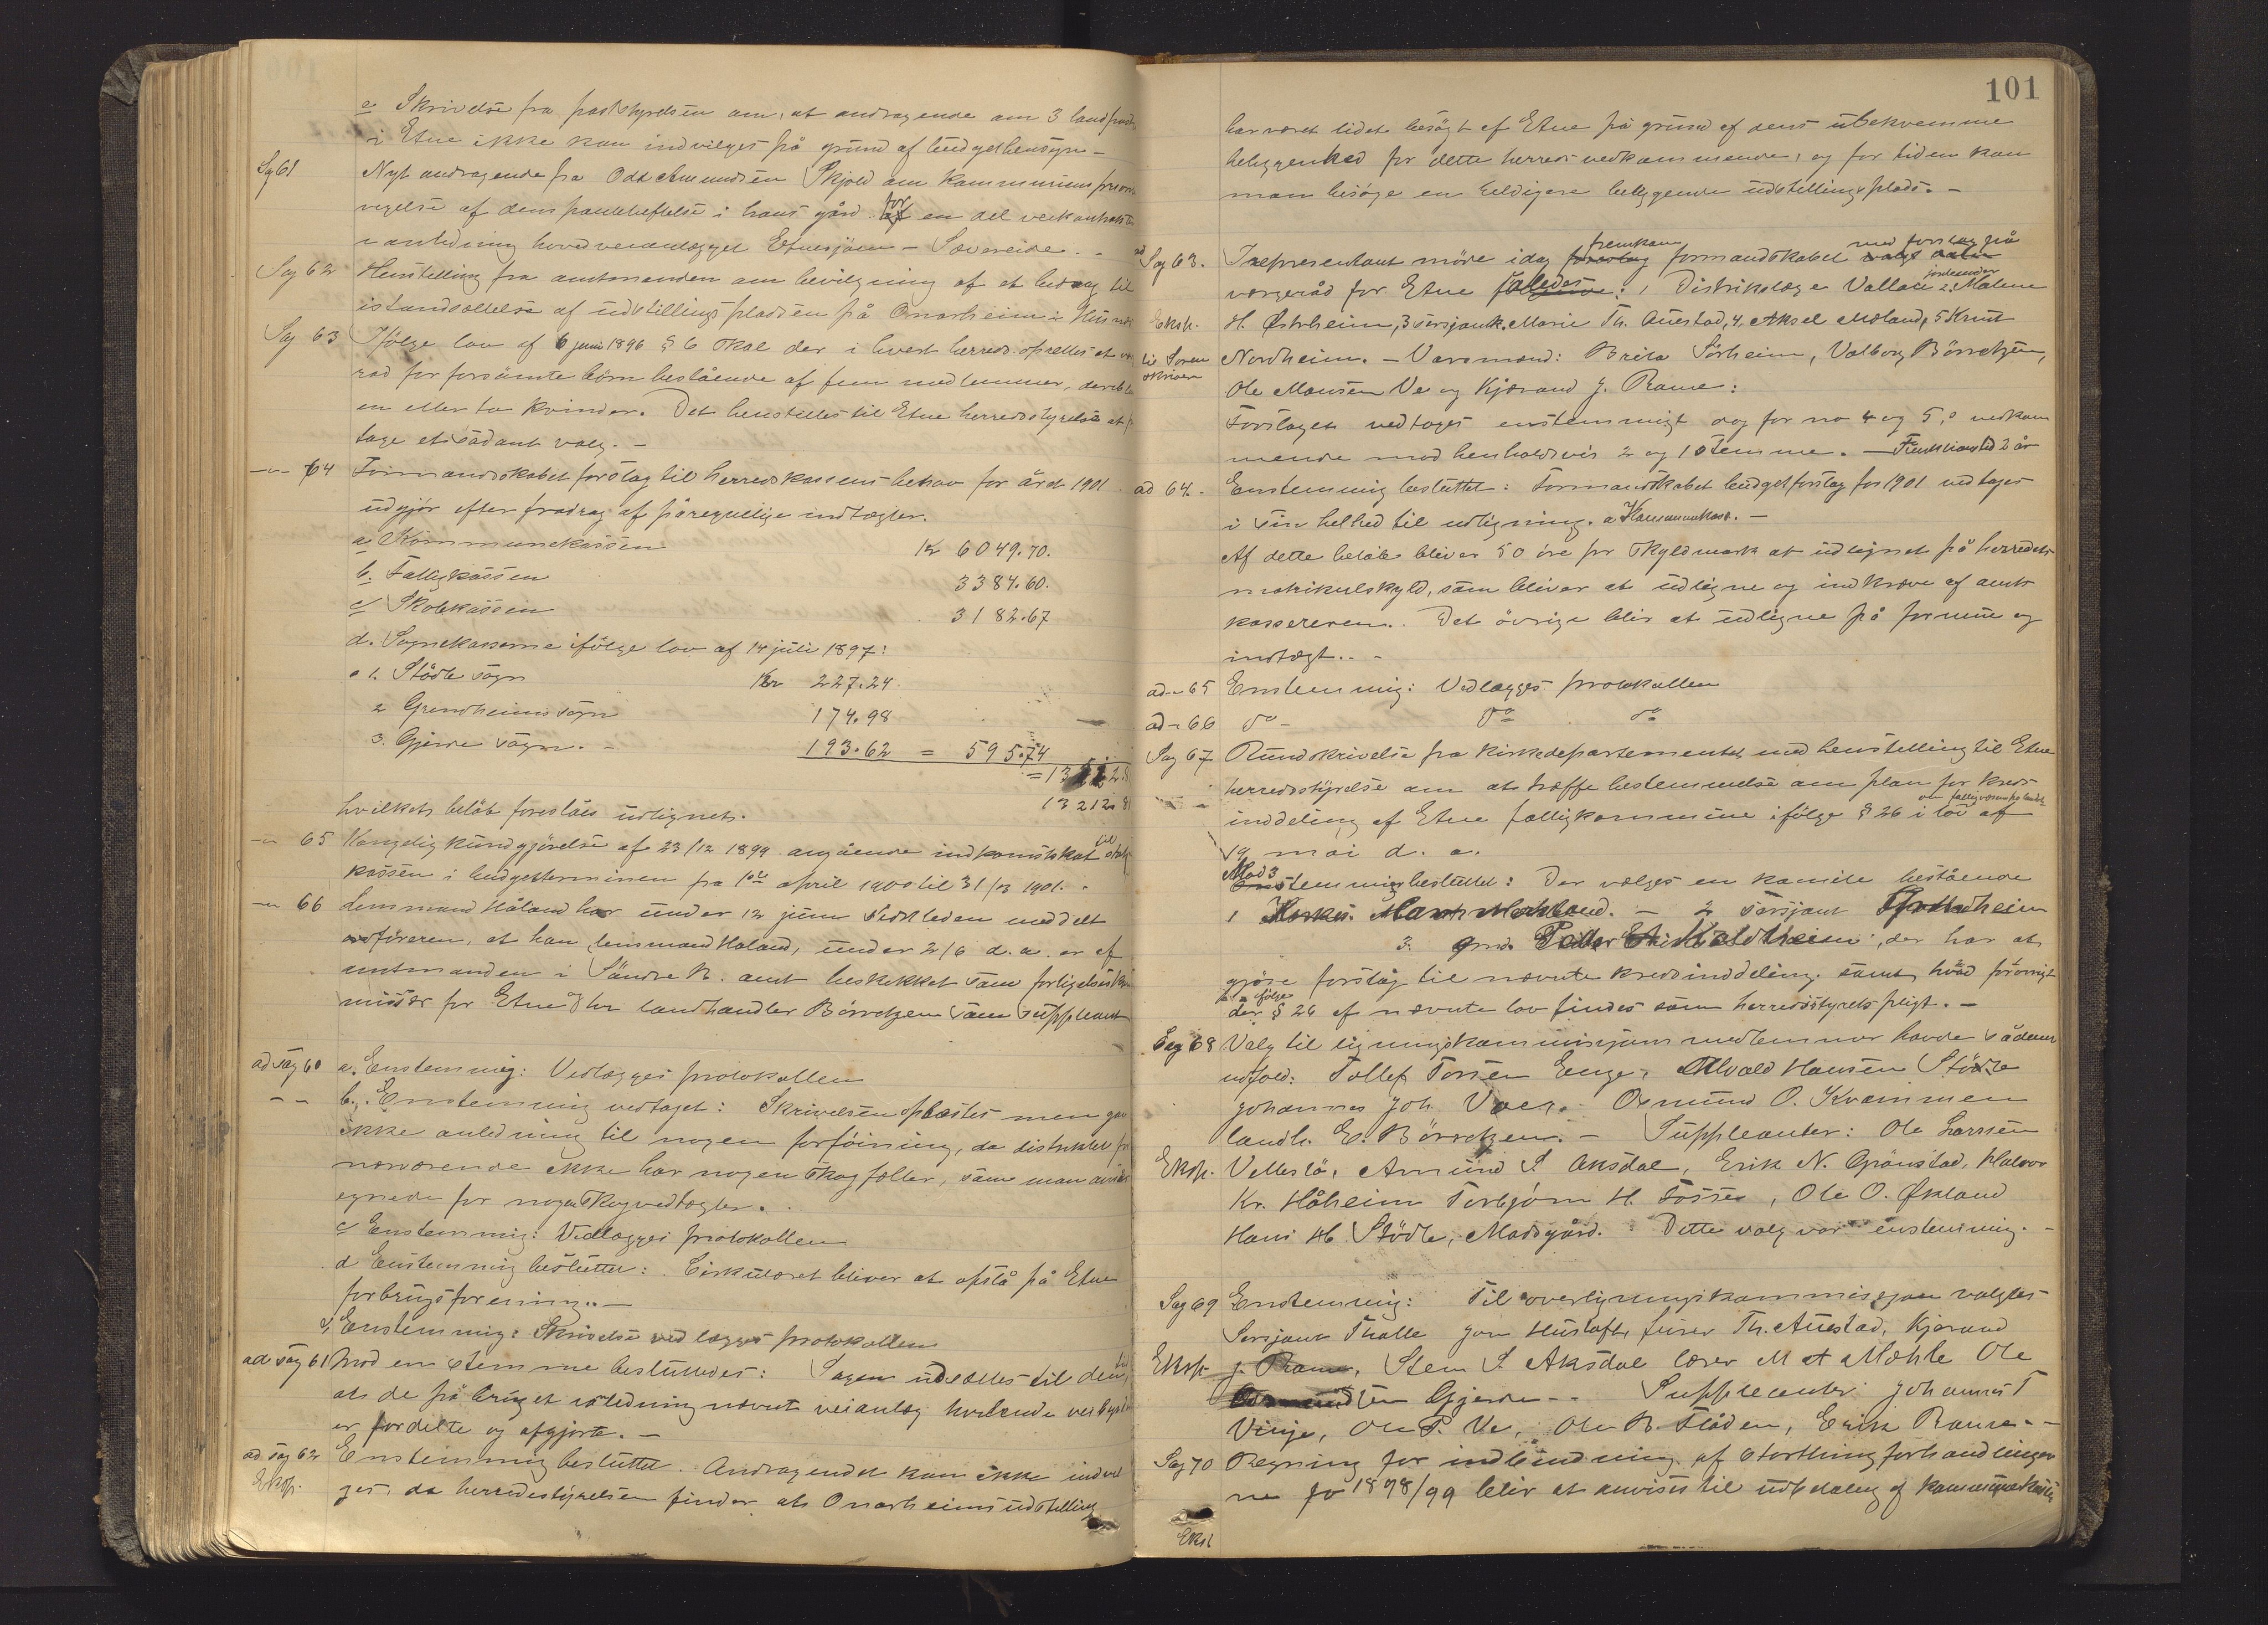 e Skrivelse fra poststyrelsen om, at andragende om 3 landpost
i Etne ikke kan indvilges på grund af budgethensyn –
Sag 61 Nyt andragende fra Odd Amundsen Skjold om kommunens
vegelse af dens panteheftelse i hans gård for en del veikontrakt
i anledning hovedveianlægget Etnesjøen – Sævereide. –
Sag 62 Henstilling fra amtmanden om bevilgning af et bidrag til
istandsættelse af udstillingspladsen på Onarheim i
Sag 63 Ifölge lov af 6 juni 1896 § 6 skal der i hvert herred oprettes et
råd for forsömte börn bestående af fem medlemmer,
en eller to kvinder. Det henstilles til Etne herredsstyrelse at
tage et sådant valg. –
–"– 64 Formandskabet forslag til herredskassens behov for året 1901
udgjör efter fradrag af påregnelige indtægter.
a. Kommunekassen Kr 6049.70.
b. Fattigkassen 3384.60.
c/ Skolekassen 3182.67
d. Sognekasserne ifölge lov af 14 juli 1897:
1. Stödle sogn Kr 227.24
2 Grindheims sogn 174.98
3. Gjerde sogn. – 193.62 = 595.74
13212.
hvilket belöb foreslåes udlignet.
–"– 65 Kongelig kundgjörelse af 23/12 1899 angående indkomstskat til
kassen i budgetterminen fra 1ste april 1900 til 31/3 1901. –
–"– 66 Lensmand Håland har under 12 juni sidstleden meddelt
ordföreren, at han, lensmand Håland, under 2/6 d.a. er af
amtmanden i Söndre B. amt beskikket som
for Etne og hr landhandler Börretzen som suppleant
ad sag 60 a. Enstemmig: Vedlægges protokollen
– – b. Enstemmig vedtaget: Skrivelsen oplæstes men gav
ikke anledning til nogen forföining, da distriktet for
nærværende ikke har nogen skogfelter, som man anser
egnede for noget skogvedtægter.
c Enstemmig: Vedlægges protokollen
d Enstemmig besluttet: Cirkulæret bliver at opslå på Etne
forbrugsforening. –
e, Enstemmig: Skrivelse vedlægges protokollen
ad sag 61 Mod en stemme besluttedes: Sagen udsættes til den tid,
at de på bruget i anledning nævnt veianlæg hvilende
er fordelte og afgjorte. –
ad sag 62 Enstemmig besluttet. Andragendet kan ikke indvil
Eksp. ges, da herredsstyrelsen finder at Onarheims udstilling
101
har været lidet besögt af Etne på grund af dens ubekvemme
beliggenhed for dette herreds vedkommende, og for tiden kan
man besöge en heldigere beliggende udstillingsplads. –
ad Sag 63. I representant möde idag fremkom formandskabet med forslag på
værgeråd for Etne således: 1 Distriktslæge Vallace 2. jordemoder Malene
Eksp. H. Østrheim, 3 Sersjantk. Marie Th. Auestad, 4. Aksel Mæland, 5 Knut
til Soren Nordheim. – Varamænd: Brita Sörheim, Valborg Börretzen,
skriver Ole Monsen Ve og Kjærand J. Rame:
Forslaget vedtoges enstemmigt dog for no 4 og 5's vedkom
mende mod henholdsvis 2 og 1 stemme. – Funktionstid 2 år
ad 64. Enstemmig besluttet: Formandskabet budgetforslag for 1901 vedtages
i sin helhed til udligning. a Kommunekass. –
Af dette belöb bliver 50 öre pr skyldmark at udlignet på herredets
matrikulskyld, som bliver at udligne og indkræve af amts
kassereren. Det övrige blir at udligne på formue og
indtægt. –
ad – 65 Enstemmig: Vedlægges protokollen
ad – 66 do – do do
Sag 67 Rundskrivelse fra Kirkedepartementet med henstilling til Etne
herredsstyrelse om at træffe bestemmelse om plan for kreds
inddeling af Etne fattigkommune ifölge § 26 i lov om fattigvæsenet på landet af
19 mai d. a.
Mod 3 stemmer besluttet: Der vælges en komite bestående
1 2 sersjant
3. , der har at
gjöre forslag til nævnte kredsinddeling, samt hvad forövrigt
ifölge § 26 af nævnte lov findes som herredsstyrets pligt. –
Sag 68 Valg til ligningskommissjons medlemmer havde sådant
udfald: Tollef Torsen Enge, Alvald Hansen Stödle
Johannes Joh. Osmund O. Kvammen
landh. E. Börretzen. – Suppleanter: Ole Larssen
Eksp. Amund S. Aksdal, Erik N. Grönstad, Halvor
Kr. Håheim Torbjörn H. Fosse, Ole O. Økland
Hans H. Stödle, Madsgård. Dette valg var enstemmig. –
Sag 69 Enstemmig: Til overligningskommissjon valgtes
Sersjant Tholle Jon Hustoft, furer Th. Auestad, Kjærand
Eksp. J. Rame, Sten S. Aksdal lærer M. Mæhle Ole
Gjerde – Suppleanter Johannes T
Vinje, Ole P. Ve, Ole B. Flåden, Erik Rame. –
Sag 70 Regning for indbinding af Storthingforhandlinger
ne for 1898/99 blir at anvises til udbetaling af kommunekassen
Eksp